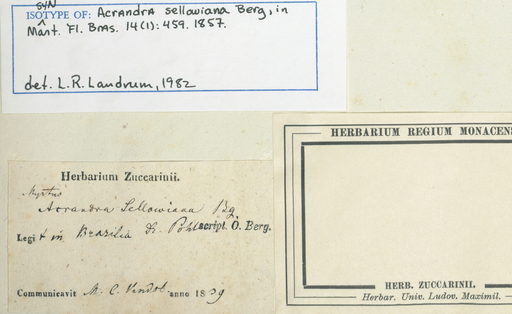 SYN
ISOTYPE OF: Acrandra sellowiana Berg, in
Mart. Fl. Bras. 14(1): 459. 1857.
det. L.R. Landrum, 1982
HERBARIUM REGIUM MONACENS
Herbarium Zuccarinii.
Myrtus
Acrandra Sellowiana Bg.
script. O. Berg.
Legit in Brasilia Dr. Pohl
HERB. ZUCCARINII.
Herbar. Univ. Ludov. Maximil.
Communicavit M. C. Vindob. anno 1839